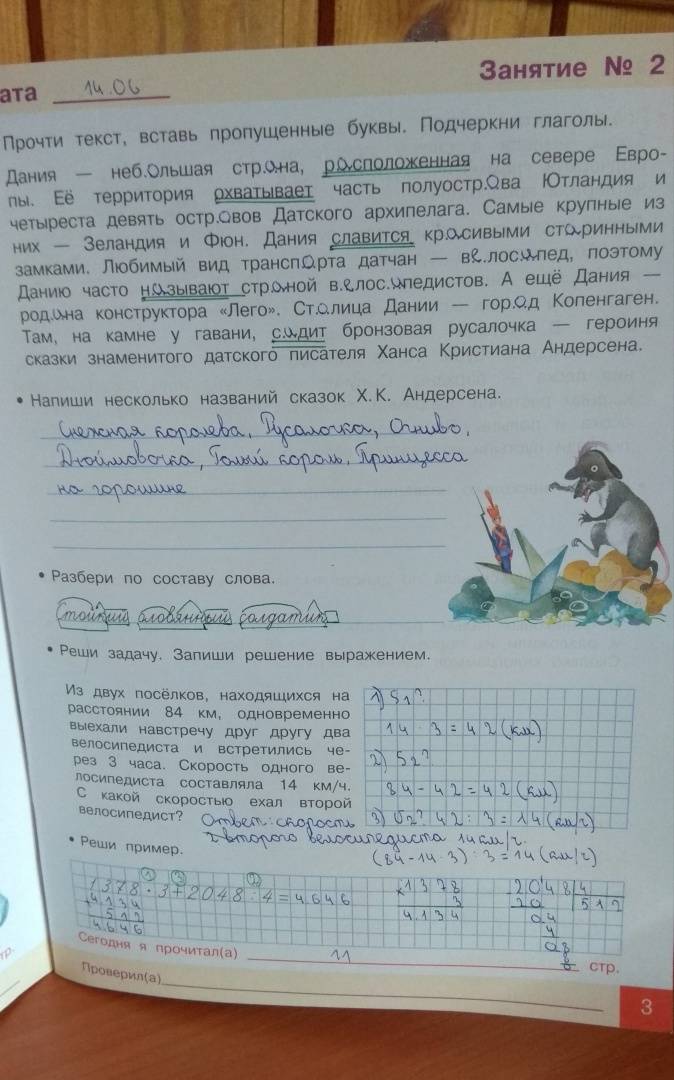 ата 14.06
Занятие № 2
Прочти текст, вставь пропущенные буквы. Подчеркни глаголы.
Дания — неб.ольшая страна, расположенная на севере Евро-
пы. Её территория охватывает часть полуострова Ютландия и
четыреста девять островов Датского архипелага. Самые крупные из
них — Зеландия и Фюн. Дания славится красивыми старинными
замками. Любимый вид транспорта датчан — велосипед, поэтому
Данию часто называют страной велосипедистов. А ещё Дания —
родина конструктора «Лего». Столица Дании — город Копенгаген.
Там, на камне у гавани, сидит бронзовая русалочка — героиня
сказки знаменитого датского писателя Ханса Кристиана Андерсена.
• Напиши несколько названий сказок Х.К. Андерсена.
Снежная королева, Русалочка, Огниво,
Дюймовочка, Голый король. Принцесса
на горошине
• Разбери по составу слова.
Стойкий оловянный солдатик
• Реши задачу. Запиши решение выражением.
Из двух посёлков, находящихся на
расстоянии 84 км, одновременно
выехали навстречу друг другу два
велосипедиста и встретились че-
рез 3 часа. Скорость одного ве-
лосипедиста составляла 14 км/ч.
С какой скоростью ехал второй
велосипедист? Ответ: скорость
2 второго велосипедиста 14 км/ч.
1) S1?
14 · 3 = 42 (км)
2) S2?
84 - 42 = 42 (км)
3) v2? 42 : 3 = 14 (км/ч)
(84 - 14 · 3) : 3 = 14 (км/ч)
• Реши пример.
1 3 2
1378 · 3 + 2048 : 4 = 4646
+4134
512
4646
×1378
3
4134
2048 4
20 512
04
4
08
8
Сегодня я прочитал(а) 11 стр.
Проверил(а)
тр.
3